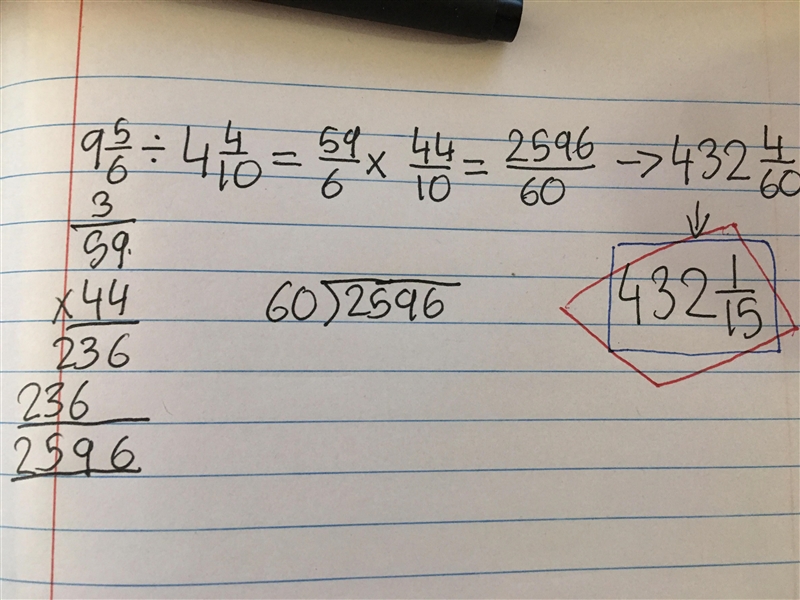 9 5/6 ÷ 4 4/10 = 59/6 × 44/10 = 2596/60 → 432 4/60
3
59.
×44
236
236
2596
60)2596
↓
432 1/15